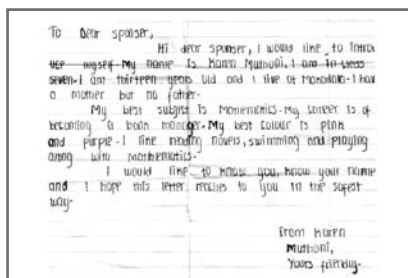 To Dear sponser,
Hi dear sponser, I would like to Introd
uce myself. My name Is Karen Muthoni, I am In class
seven. I am thirteen years old and I live at I hav
a mother but no father.
My best subject Is Mathematics. My career Is of
becoming a bank manager. My best colour Is pink
and purple. I like reading novels, swimming and playing
along with mathematics.
I would like to know you, know your name
and I hope this letter reaches to you In the safest
way.
From Karen
Muthoni,
Yours friendly.